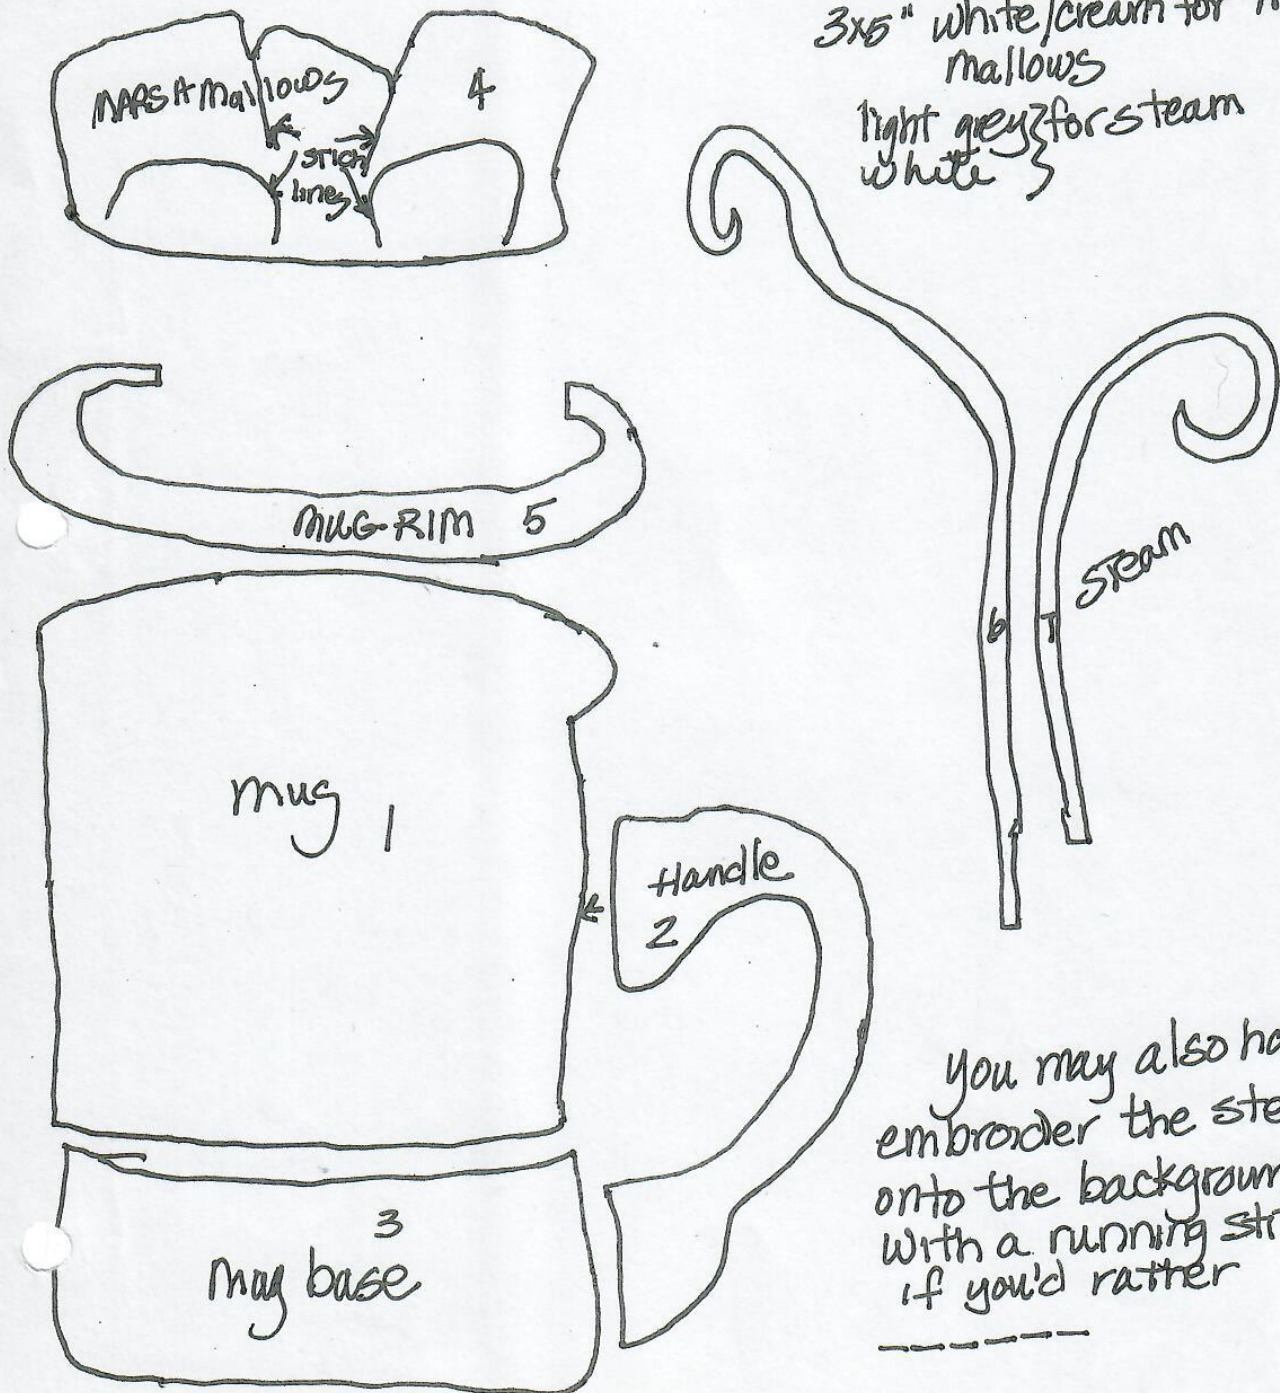 3x5" white/cream for
mallows
light grey } for steam
white }
MARSHMallows
4
stich
lines
MUG-RIM 5
STEAM
6
7
mug 1
Handle
2
3
mug base
you may also
embroider the
onto the
with a running
if you'd rather